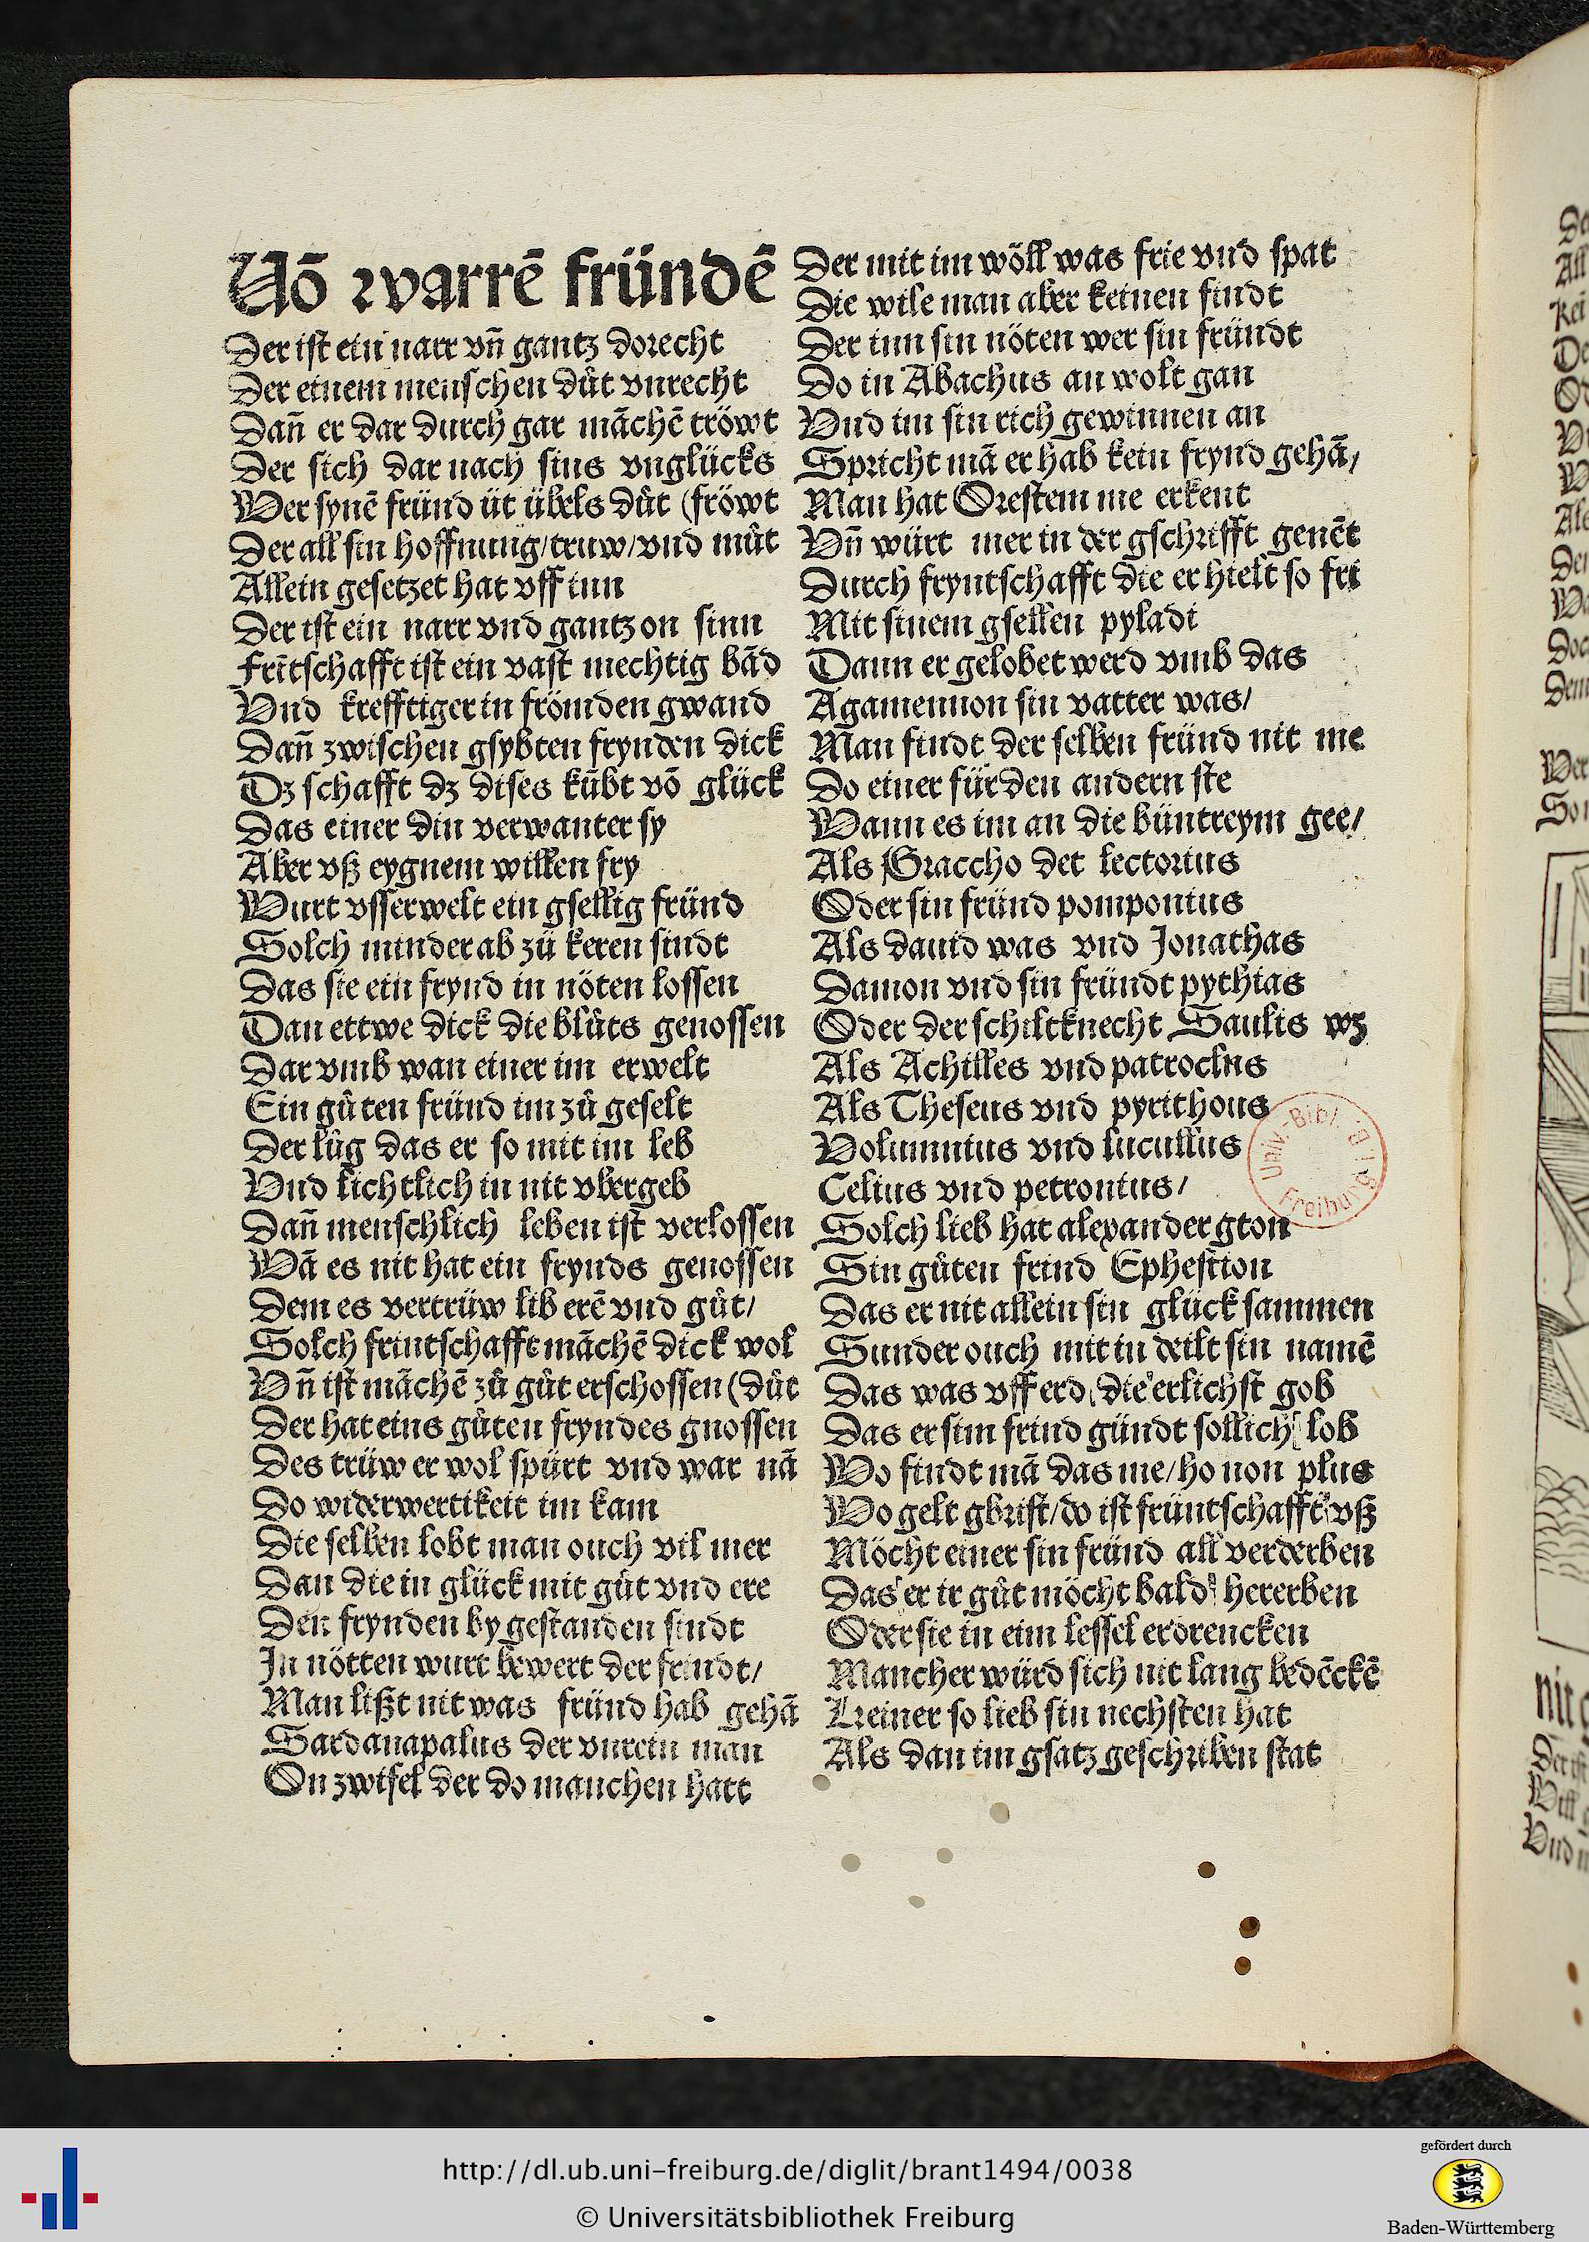 Uō warrē fründē
Der ist ein narr vn̄ gantz dorecht
Der einem menschen dût vnrecht
Dan̄ er dar durch gar māchē tröwt
Der sich dar nach sins vnglücks
Wer synē fründ üt übels dût (fröwt
Der all sin hoffnung/truw/vnd mût
Allein gesetzet hat vff inn
Der ist ein narr vnd gantz on sinn
Frītschafft ist ein vast mechtig bād
Vnd krefftiger in frömden gwand
Dan̄ zwischen gsybten frynden dick
Dz schafft dz dises kūbt vō glück
Das einer din verwanter sy
Aber vß eygnem willen fry
Wurt vsserwelt ein gsellig fründ
Solch minder ab zü keren sindt
Das sie ein frynd in nöten lossen
Dan ettwe dick die blûts genossen
Dar vmb wan einer im erwelt
Ein gûten fründ im zû geselt
Der lûg das er so mit im leb
Vnd lichtlich in nit vbergeb
Dan̄ menschlich leben ist verlossen
Wā es nit hat ein frynds genossen
Dem es vertrüw lib erē vnd gût/
Solch frintschafft māchē dick wol
Vn̄ ist māchē zû gût erschossen (dût
Der hat eins gûten fryndes gnossen
Des trüw er wol spürt vnd war nā
Do widerwertikeit im kam
Die selben lobt man ouch vil mer
Dan die in glück mit gût vnd ere
Den frynden by gestanden sindt
In nötten wurt bewert der frindt/
Man lißt nit was fründ hab gehā
Sardanapalus der vnrein man
On zwifel der do manchen hatt
Der mit im wöll was frie vnd spat
Die wile man aber keinen findt
Der inn sin nöten wer sin fründt
Do in Abachus an wolt gan
Vnd im sin rich gewinnen an
Spricht mā er hab kein frynd gehā/
Man hat Orestem me erkent
Vn̄ würt mer in der gschrifft genēt
Durch fryntschafft die er hielt so fri
Mit sinem gsellen pyladi
Dann er gelobet werd vmb das
Agamennon sin vatter was/
Man findt der selben fründ nit me
Do einer für den andern ste
Wann es im an die büntreym gee/
Als Graccho det lectorius
Oder sin fründ pomponius
Als dauid was vnd Jonathas
Damon vnd sin fründt pythias
Oder der schiltknecht Saulis wz
Als Achilles vnd patroclus
Als Theseus vnd pyrithous
Volumnius vnd lucullus
Celius vnd petronius/
Solch lieb hat alexander gton
Sin gûten frind Ephestion
Das er nit allein sin glück sammen
Sunder ouch mit in deilt sin namē
Das was vff erd die erlichst gob
Das er sim frind gündt sollich lob
Wo findt mā das me/ho non plus
Wo gelt gbrist/do ist früntschafft vß
Möcht einer sin fründ all verderben
Das er ir gût möcht bald hererben
Oder sie in eim lessel erdrencken
Mancher würd sich nit lang bedēckē
Keiner so lieb sin nechsten hat
Als dan im gsatz geschriben stat
Univ.-Bibl.
Freiburg i. B.
http://dl.ub.uni-freiburg.de/diglit/brant1494/0038
© Universitätsbibliothek Freiburg
gefördert durch
Baden-Württemberg